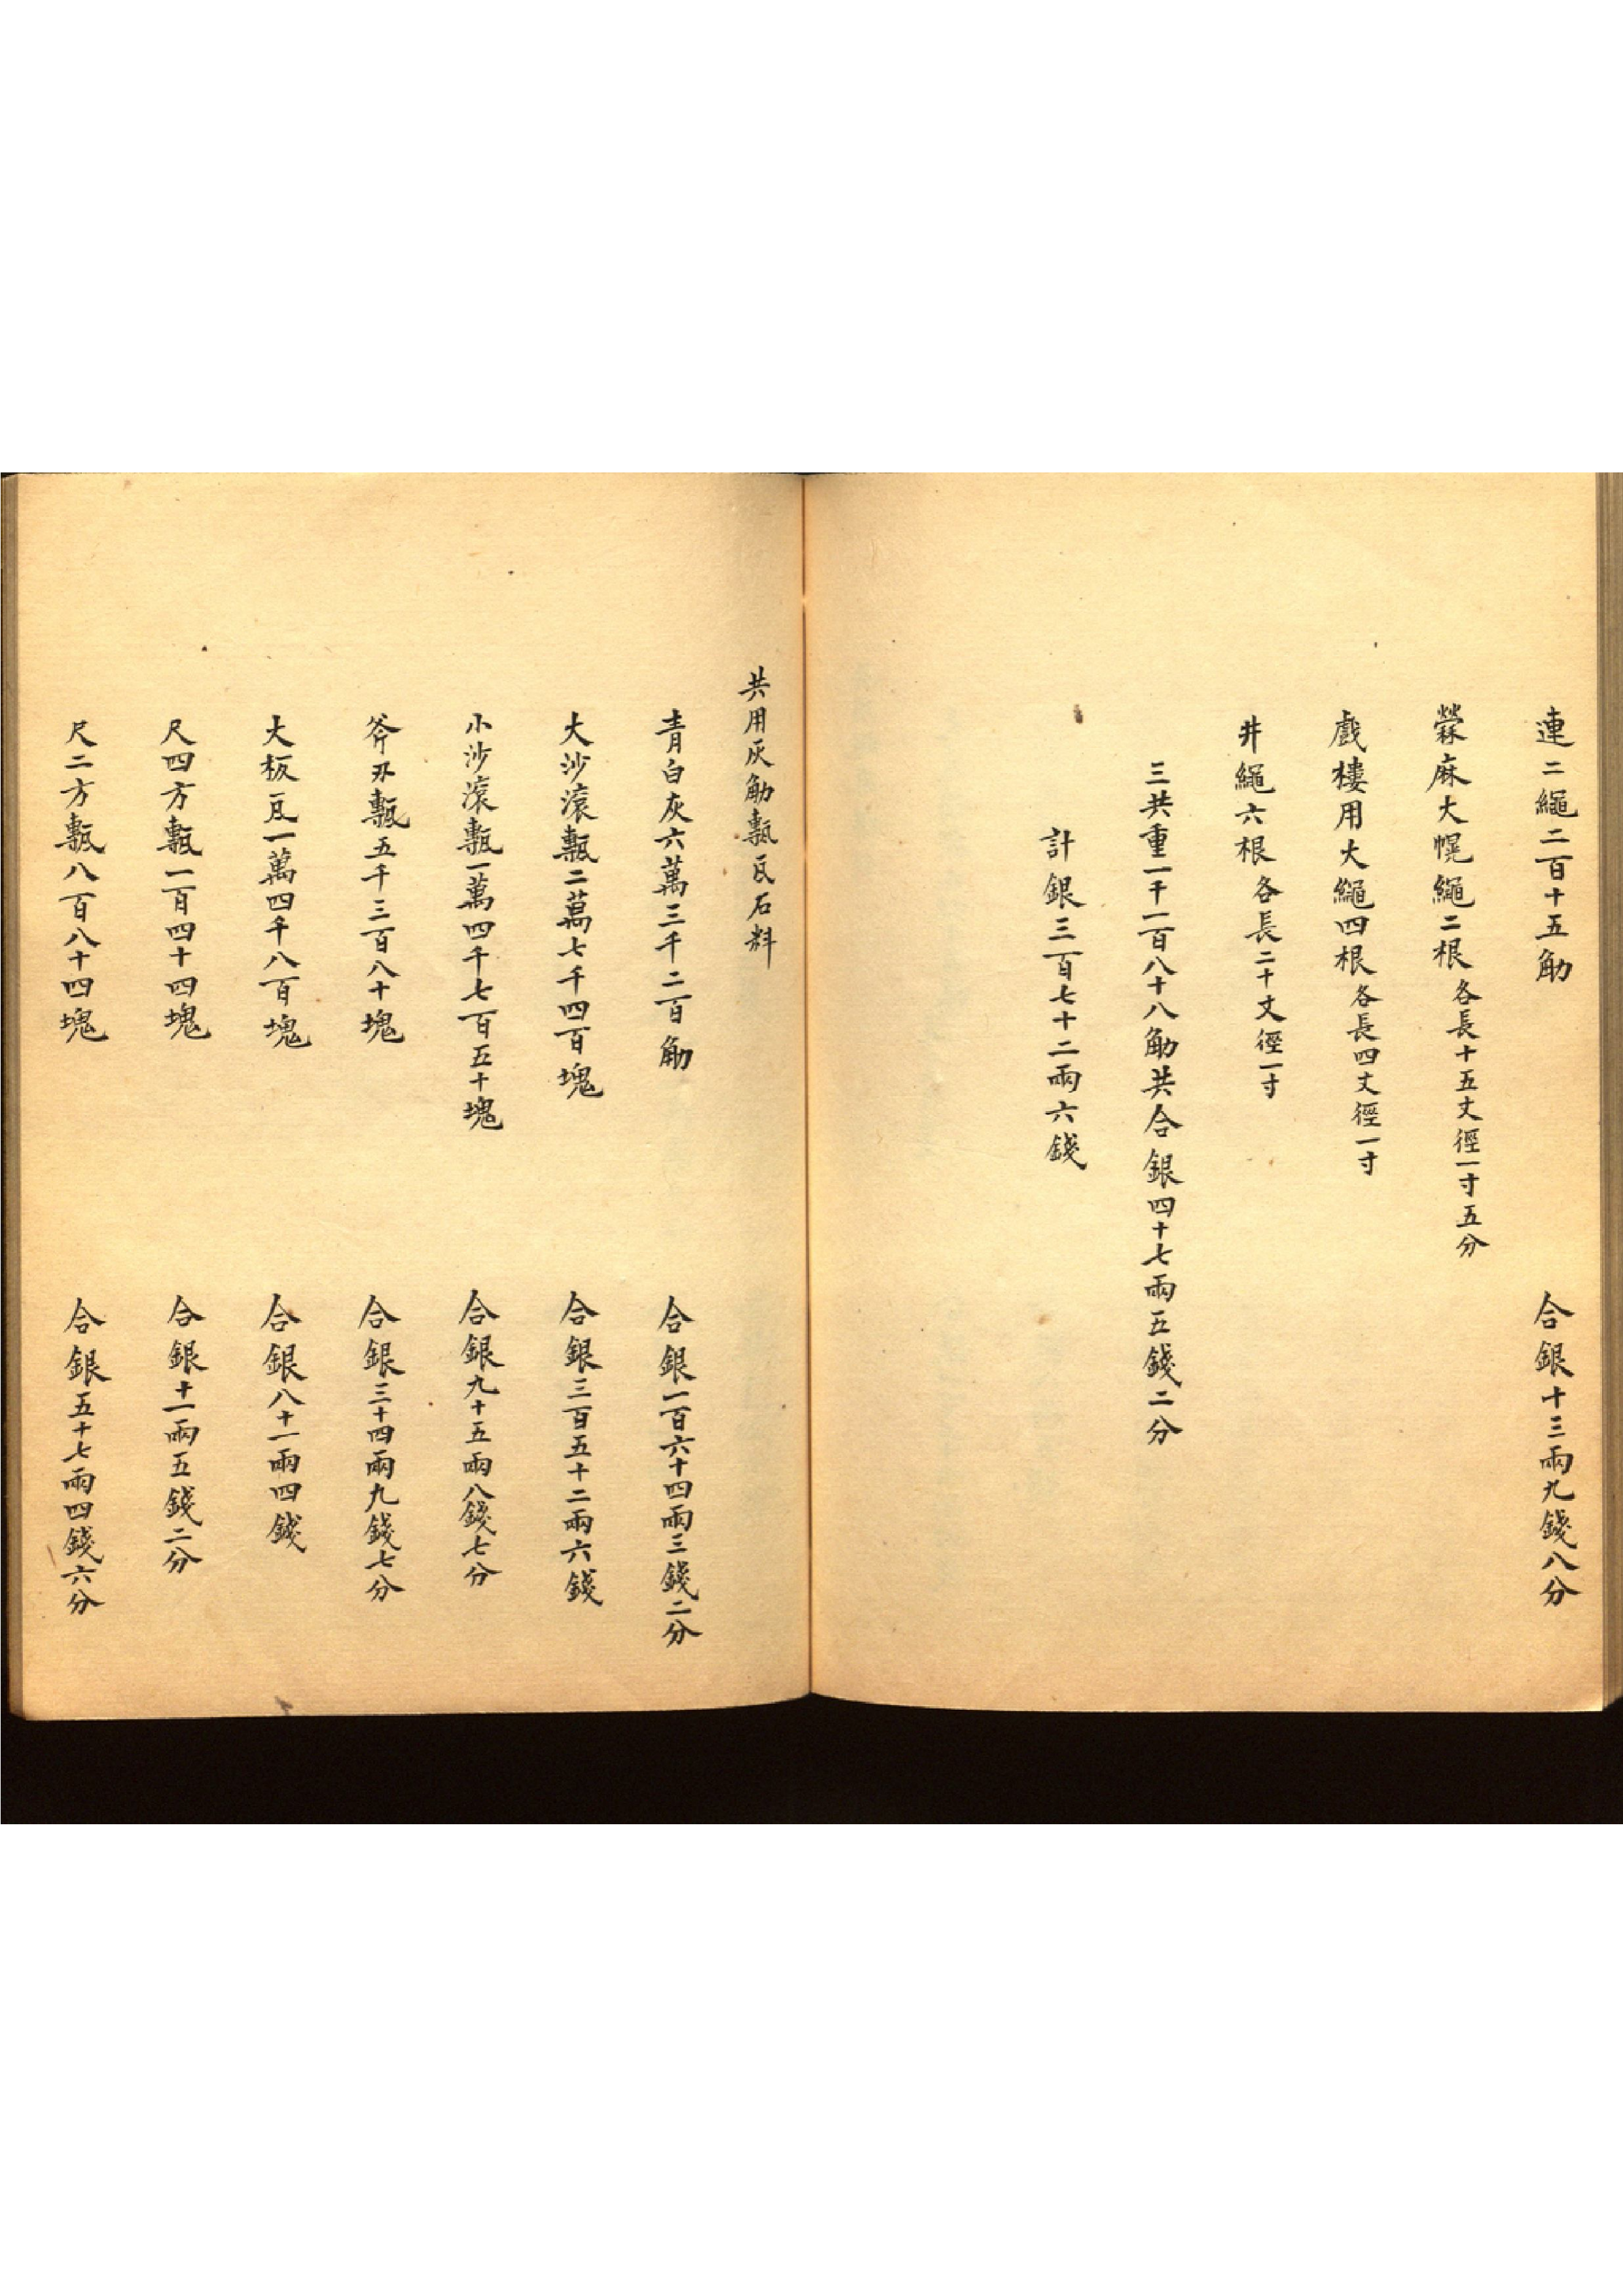 連二繩二百十五觔 合銀十三兩九錢八分
檾麻大幌繩二根各長十五丈徑一寸五分
戲樓用大繩四根各長四丈徑一寸
井繩六根各長二十丈徑一寸
三共重一千一百八十八觔共合銀四十七兩五錢二分
計銀三百七十二兩六錢
共用灰觔甎瓦石料
青白灰六萬三千二百觔 合銀一百六十四兩三錢二分
大沙滾甎二萬七千四百塊 合銀三百五十二兩六錢
小沙滾甎一萬四千七百五十塊 合銀九十五兩八錢七分
斧刃甎五千三百八十塊 合銀三十四兩九錢七分
大板瓦一萬四千八百塊 合銀八十一兩四錢
尺四方甎一百四十四塊 合銀十一兩五錢二分
尺二方甎八百八十四塊 合銀五十七兩四錢六分